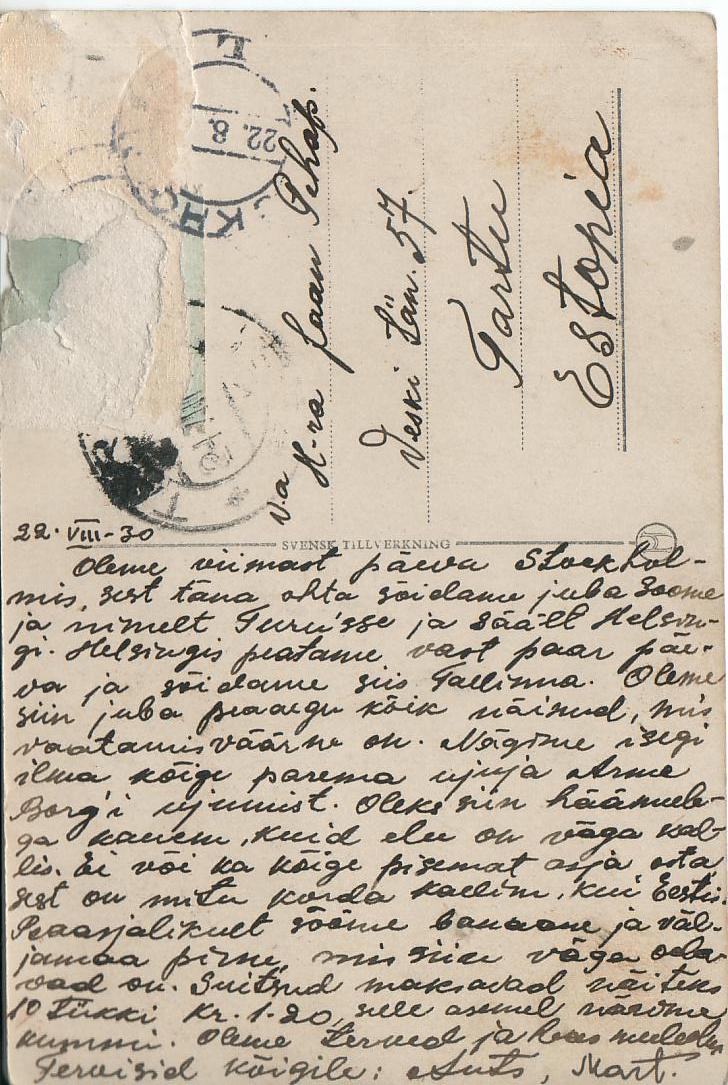 22. VIII-30
SVENSK TILLVERKNING
Oleme viimast päeva Stockhol-
mis, sest täna õhta sõidame juba Soome
ja nimelt Turu'sse ja säält Helsin-
gi. Helsingis peatame vast paar päe-
va ja sõidame siis Tallinna. Oleme
siin juba peaaegu kõik näinud, mis
vaatamisväärne on. Nägime isegi
ilma kõige parema ujuja Arne
Borg'i ujumist. Oleks siin häämele-
ga kauem, kuid elu on väga kal-
lis. Ei või ka kõige pisemat asja osta
sest on mitu korda kallim, kui Eestis.
Peaasjalikult sööme banaane ja väl-
jamaa pirne, mis siin väga oda-
vad on. Suitsud maksavad näiteks
10 tükki kr. 1-20, selle asemel närime
kummi. Oleme terved ja heas meeleolus
Tervisid kõigile: Ants, Mart.
V.a
H-ra Jaan
Veski tän. 57.
Tartu
Estonia
22.8.